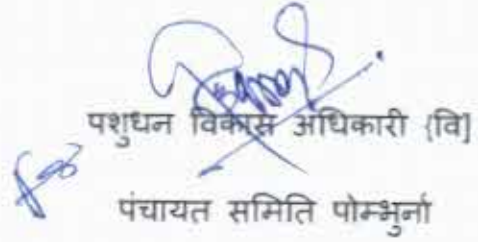 पशुधन विकास अधिकारी {वि]
पंचायत समिति पोम्भुर्ना